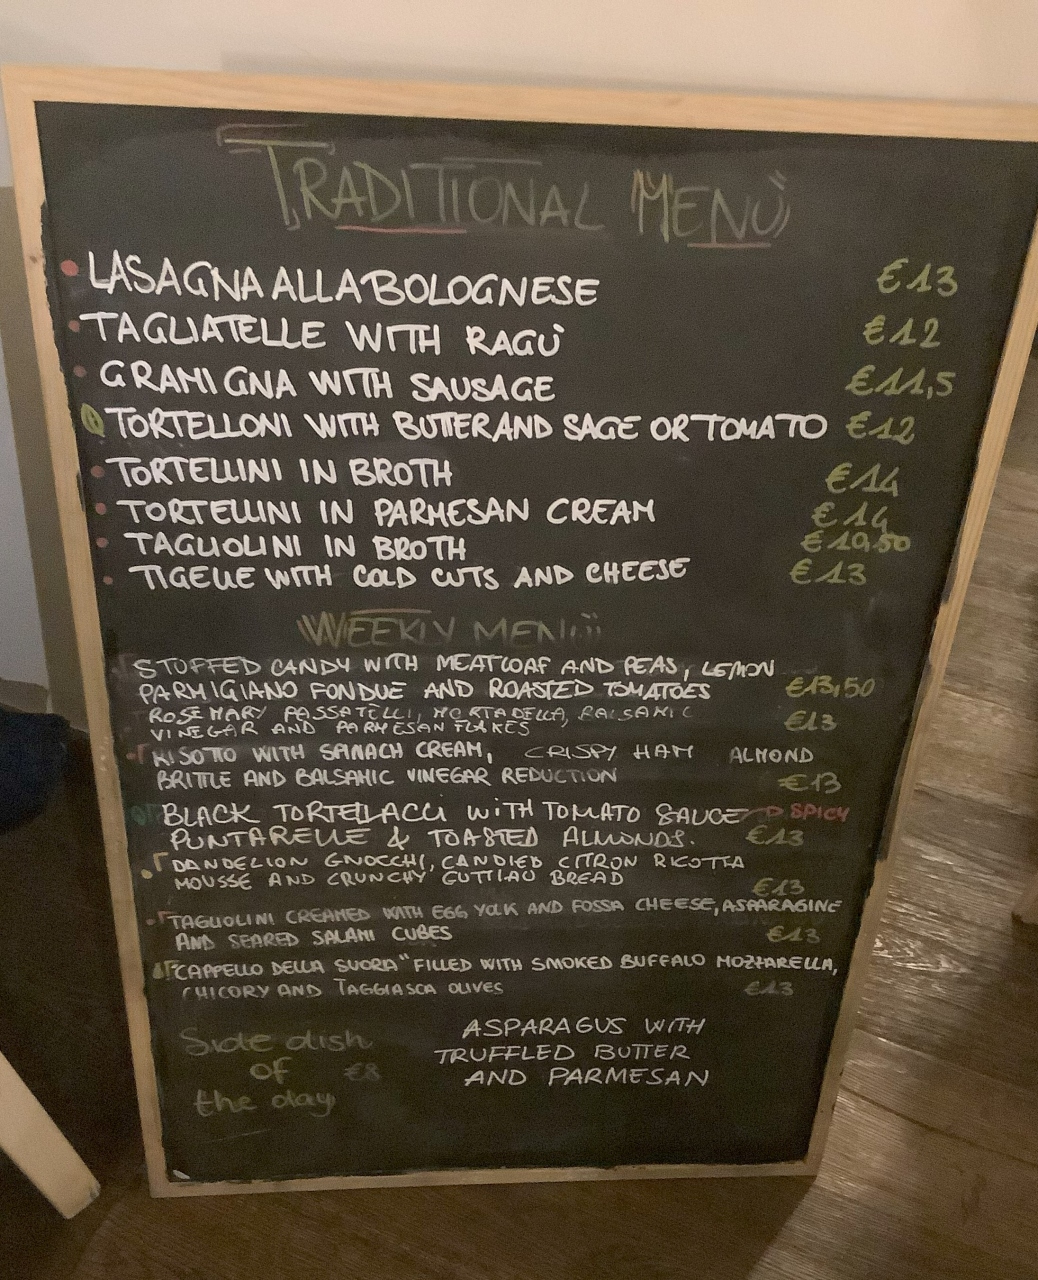 TRADITIONAL MENÙ
LASAGNA ALLA BOLOGNESE €13
TAGLIATELLE WITH RAGÙ €12
GRAMIGNA WITH SAUSAGE €11,5
TORTELLONI WITH BUTTER AND SAGE OR TOMATO €12
TORTELLINI IN BROTH €14
TORTELLINI IN PARMESAN CREAM €14
TAGLIOLINI IN BROTH €10,50
TIGELLE WITH COLD CUTS AND CHEESE €13
WEEKLY MENÙ
STUFFED CANDY WITH MEATLOAF AND PEAS, LEMON
PARMIGIANO FONDUE AND ROASTED TOMATOES €13,50
ROSEMARY PASSATELLI, MORTADELLA, BALSAMIC
VINEGAR AND PARMESAN FLAKES €13
RISOTTO WITH SPINACH CREAM, CRISPY HAM ALMOND
BRITTLE AND BALSAMIC VINEGAR REDUCTION €13
BLACK TORTELLACCI WITH TOMATO SAUCE SPICY
PUNTARELLE & TOASTED ALMONDS. €13
DANDELION GNOCCHI, CANDIED CITRON RICOTTA
MOUSSE AND CRUNCHY GUTTIAU BREAD €13
TAGLIOLINI CREAMED WITH EGG YOLK AND FOSSA CHEESE, ASPARAGINE
AND SEARED SALAMI CUBES €13
"CAPPELLO DELLA SUORA" FILLED WITH SMOKED BUFFALO MOZZARELLA,
CHICORY AND TAGGIASCA OLIVES €13
Side dish
of €8
the day
ASPARAGUS WITH
TRUFFLED BUTTER
AND PARMESAN